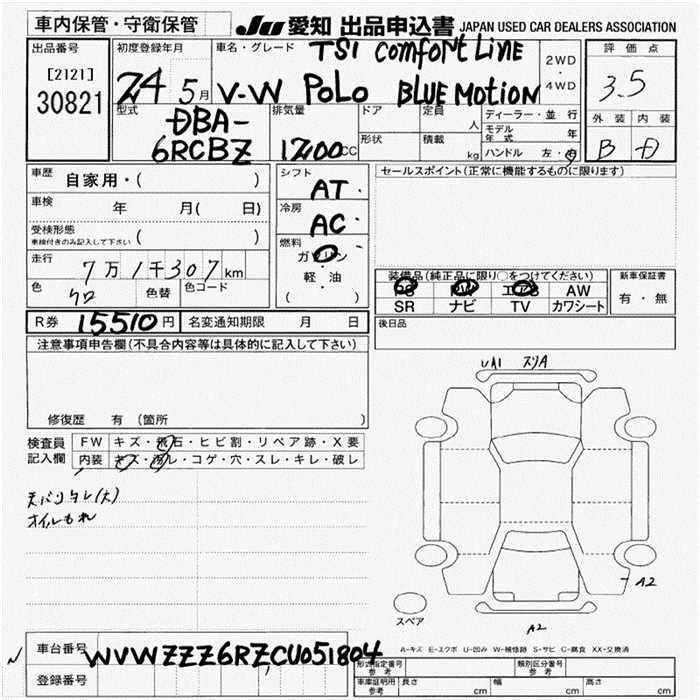 車内保管・守衛保管
JU 愛知 出品申込書 JAPAN USED CAR DEALERS ASSOCIATION
出品番号
[2121]
30821
初度登録年月
24 5月
車名・グレード
TSI comfort Line
V-W POLO BLUE MOTION
2WD
・
4WD
評価点
3.5
外装 内装
B D
型式
DBA-
6RCBZ
排気量
1200 CC
ドア
形状
定員 人
積載 kg
ディーラー・並行
モデル年式 年
ハンドル 左・右
車歴
自家用・( )
車検
年 月( 日)
受検形態
車検付きのみ記入して下さい ( )
走行
7万1千307km
色
クロ
色替
色コード
シフト
AT
冷房
AC
燃料
ガソリン
・
軽・油
( )
セールスポイント(正常に機能するものに限ります)
装備品(純正品に限り○をつけてください)
PS PW エアB AW
SR ナビ TV カワシート
新車保証書
有・無
R券 15510円 名変通知期限 月 日
後日品
注意事項申告欄(不具合内容等は具体的に記入して下さい)
修復歴 有 (箇所 )
検査員
記入欄
FW キズ・飛石・ヒビ割・リペア跡・X要
内装 キズ・汚レ・コゲ・穴・スレ・キレ・破レ
天バリタレ(大)
オイルもれ
スリA
A2
A2
スペア
A-キズ E-エクボ U-凹み W-補修跡 S-サビ C-腐食 XX-交換済
車台番号
WVWZZZ6RZCU051804
登録番号
形式指定番号
参考
類別区分番号
参考
車庫証明用
参考
長さ cm
幅 cm
高さ cm